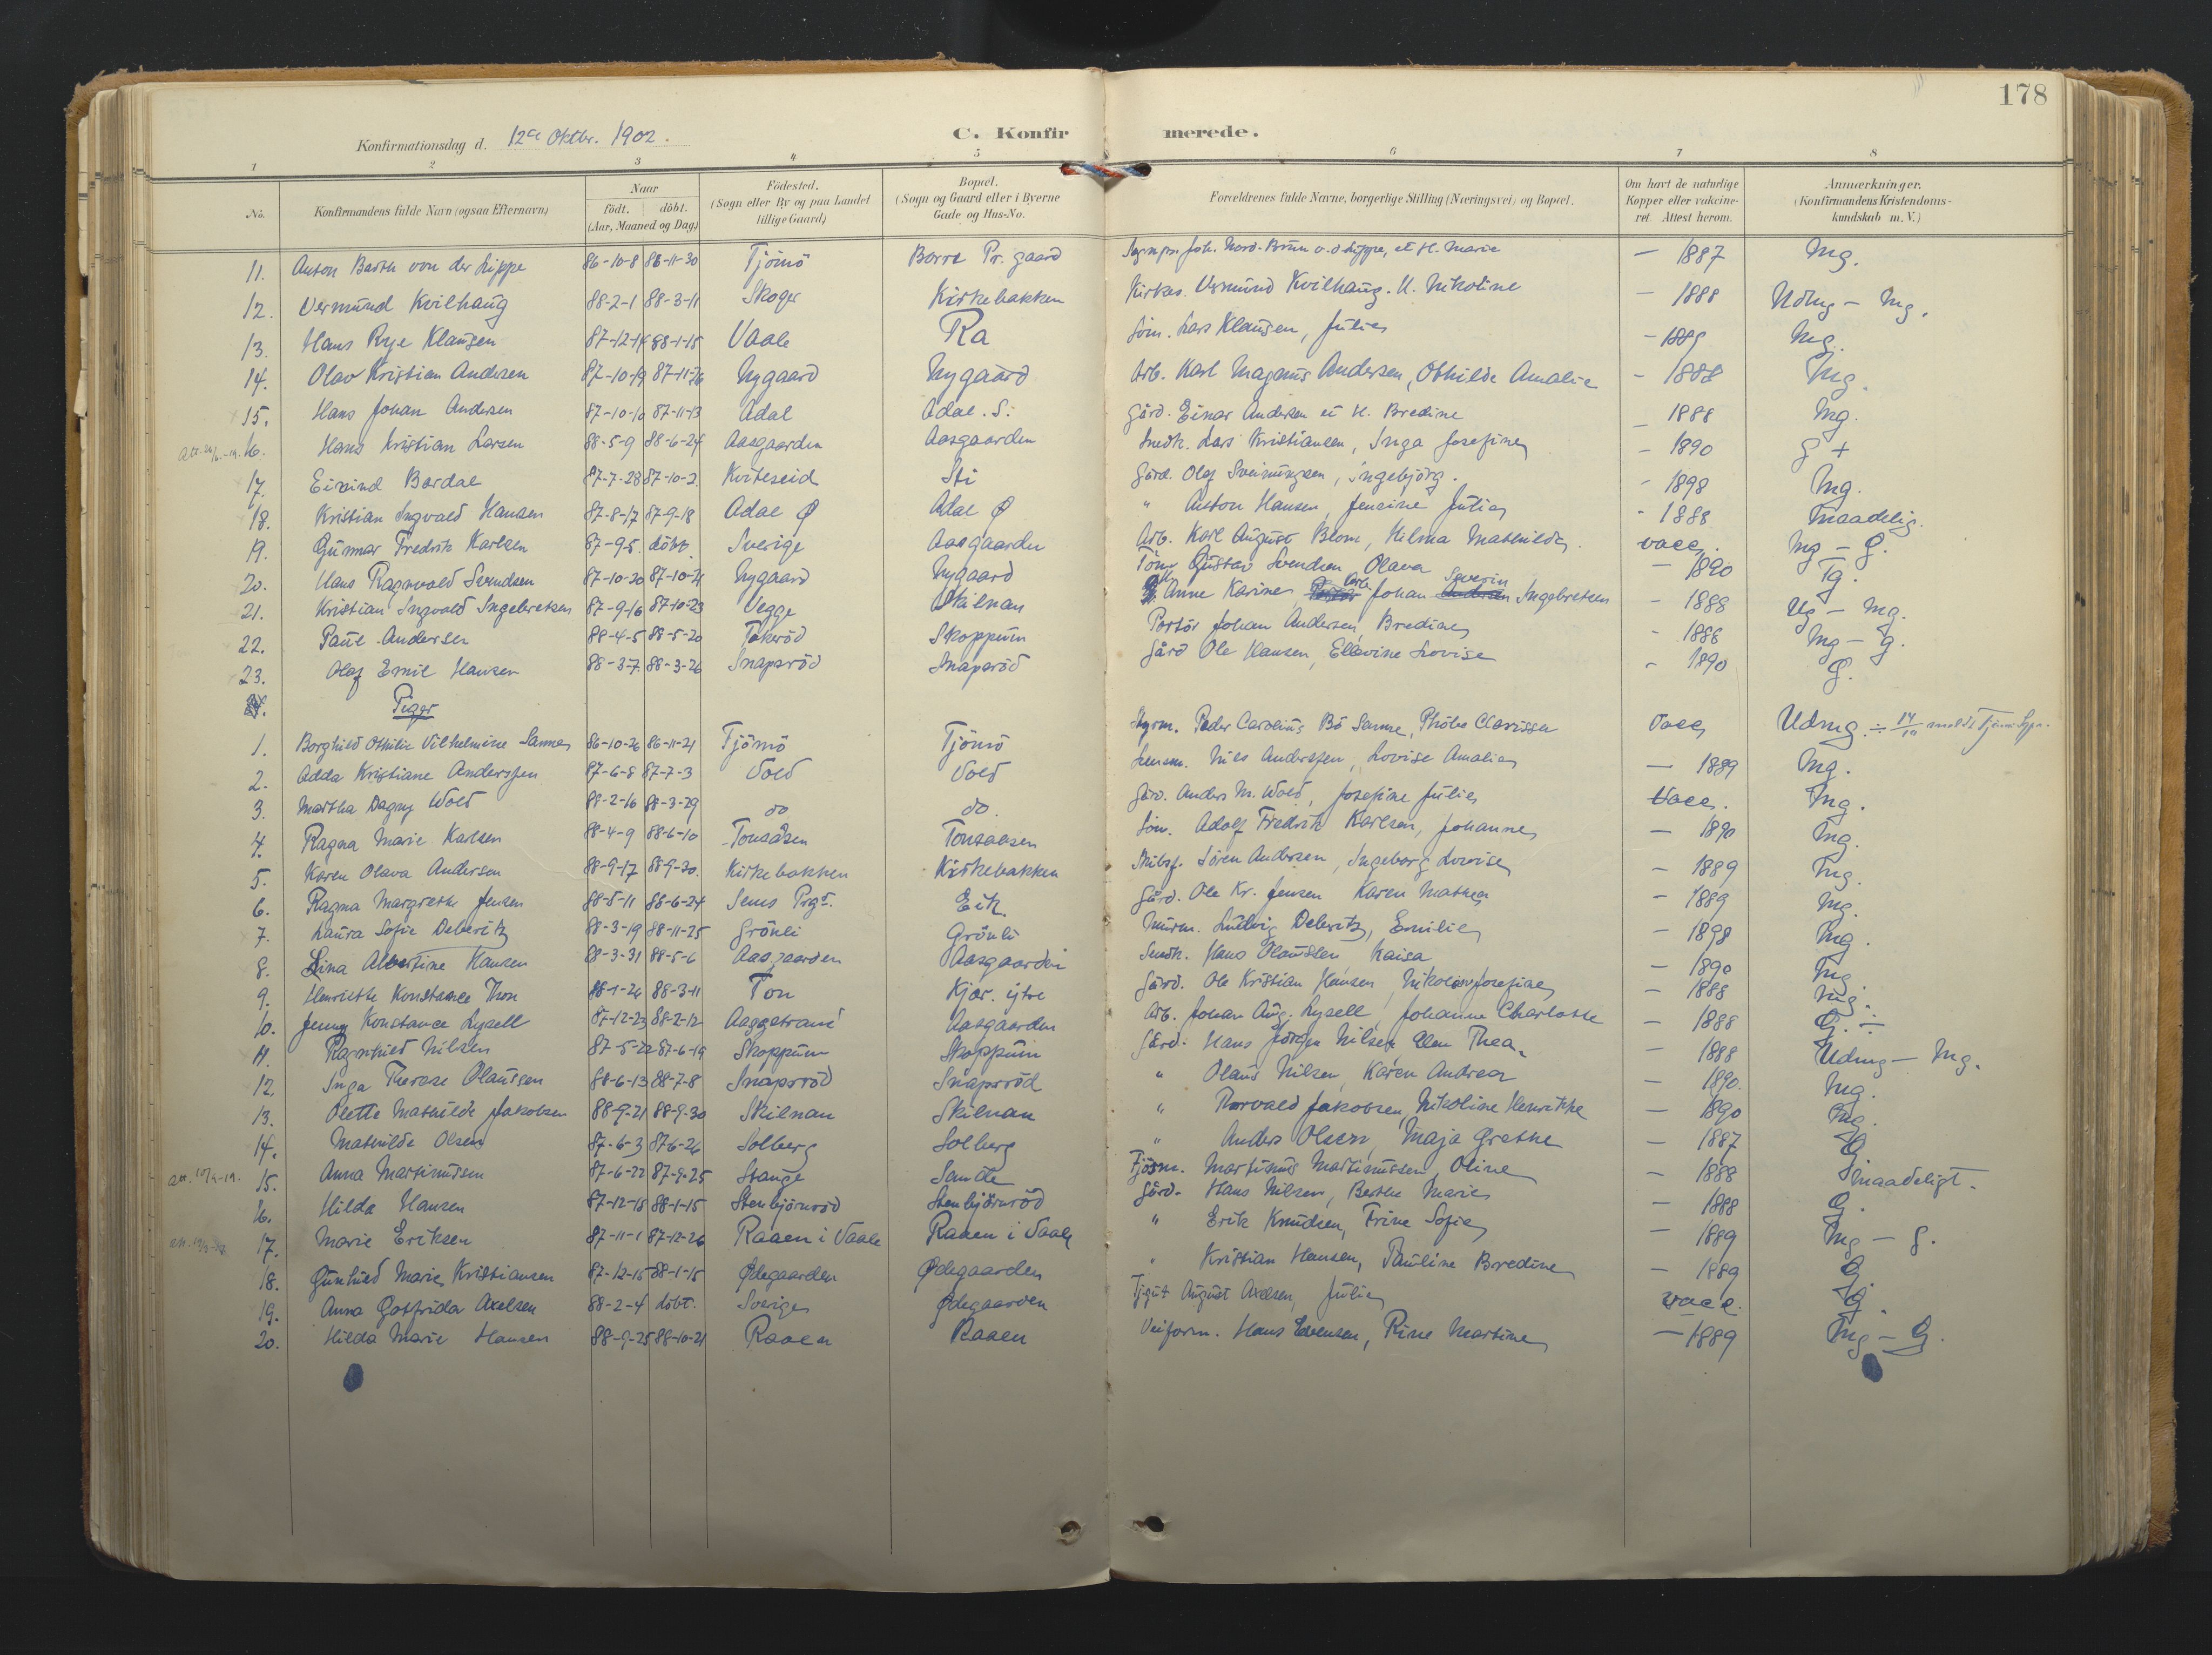 178
Konfirmationsdag d. 12te Oktbr. 1902.
C. Konfirmerede.
1 2 3 4 5 6 7 8
No. Konfirmandens fulde Navn (ogsaa Efternavn) Naar født. døbt. (Aar, Maaned og Dag) Fødested. (Sogn eller By og paa Landet tillige Gaard) Bopæl. (Sogn og Gaard eller i Byerne Gade og Hus-No. Forældrenes fulde Navne, borgerlige Stilling (Næringsvei) og Bopæl. Om havt de naturlige Kopper eller vaccineret. Attest herom. Anmærkninger. (Konfirmandens Kristendomskundskab m. V.)
11. Anton Barth von der Lippe 86-10-8 86-11-30 Tjömö Borre Pr. gaard Joh. Nord. Brun v. d. Lippe, et H. Marie — 1887 Mg.
12. Vermund Kvilhaug 88-2-1 88-3-11 Skoger Kirkebakken Kirkes. Vermund Kvilhaug. H. Nikoline — 1888 Udmg — Mg.
13. Hans Rye Klausen 87-12-14 88-1-15 Vaale Ra Söm. Lars Klausen, Julie — 1889 Mg.
14. Olav Kristian Andersen 87-10-19 87-11-26 Nygaard Nygaard Arb. Karl Magnus Andersen, Othilde Amalie - 1888 Mg.
15. Hans Johan Andersen 87-10-10 87-11-13 Adal Adal. S. Gård. Einar Andersen et H. Bredine - 1888 Mg.
16. Hans Kristian Larsen 88-5-9 88-6-24 Aasgaarden Aasgaarden Snedk. Lars Kristiansen, Inga Josefine - 1890 G +
17. Eivind Bordal 87-7-28 87-10-2. Kviteseid Sti Gård. Olaf Sveinungsen, Ingebjörg. - 1898 Mg.
18. Kristian Ingvald Hansen 87-8-17 87-9-18 Adal Ø Adal Ø " Anton Hansen, Jensine Julie - 1888 Maadelig.
19. Gunnar Fredrik Karlsen 87-9-5. döbt Sverige Aasgaarden Arb. Karl August Blom, Hilma Mathilde. vacc. Mg — G.
20. Hans Ragnvald Svendsen 87-10-30 Nygaard Nygaard Töm Gustav Svendsen Olava — 1890 Tg.
21. Kristian Ingvald Ingebretsen 87-9-16 87-10-23 Vegge Skilnan Anne Karine, Arb. Johan Severin Ingebretsen - 1888 Ug — Mg.
22. Paul Andersen 88-4-5 88-5-20 Tokeröd Skoppum Portör Johan Andersen, Bredine - 1888 Mg — G.
23. Olaf Emil Hansen 88-3-7. 88-3-26 Snaparöd Snaparöd Gård Ole Hansen, Ellevine Lovise - 1890 G.
Piger
1. Borghild Othilie Vilhelmine Sanne 86-10-26 86-11-21 Tjömö Tjömö Styrm. Peder Carolius Bö Sanne, Clarissa Vacc Udmg. ÷
2. Adda Kristiane Anderssen 87-6-8 87-7-3 Vold Vold Lensm. Nils Anderssen, Lovise Amalie — 1889 Mg.
3. Martha Dagny Wold 88-2-16 88-3-29 do do. Gård. Anders M. Wold, Josefine Julie Vacc. Mg.
4. Ragna Marie Karlsen 88-4-9 88-6-10 Tonsåsen Tonsaasen Söm. Adolf Fredrik Karlsen, Johanne — 1890 Mg.
5. Karen Olava Andersen 88-9-17 88-9-30. Kirkebakken Kirkebakken Skibsf. Sören Andersen, Ingeborg Lovise — 1889 Mg.
6. Ragna Margrethe Jensen 88-5-11 88-6-24 Sems Prgd. Eik Gård. Ole Kr. Jensen Karen Mathea - 1889 Mg.
7. Laura Sofie Deberitz 88-3-19 88-11-25 Grönli Grönli Murm. Ludvig Deberitz, Emilie — 1898 Mg.
8. Lina Albertine Hansen 88-3-31 88-5-6 Aasgaarden Aasgaarden Snedk. Hans Olaussen Kaisa — 1890 Mg.
9. Henriette Konstance Thon 88-1-24 88-3-11 Ton Kjær. ytre Gård. Ole Kristian Hansen, Josefine — 1888 Mg.
10. Jenny Konstance Lysell 87-12-23 88-2-12 Aasgaarden Arb. Johan Aug. Lysell, Johanne Charlotte — 1888 G. ÷
11. Ragnhild Nilsen 87-5-22 87-6-19 Skoppum Skoppum Gård. Hans Jörgen Nilsen, Thea. — 1888 Udmg — Mg.
12. Inga Therese Olaussen 88-6-13 88-7-8 Snaparöd Snaparöd " Olaus Nilsen, Karen Andrea — 1890. Mg.
13. Olette Mathilde Jakobsen 88-9-21 88-9-30 Skilnan Skilnan " Jakobsen, Nikoline Henrikke — 1890 Mg.
14. Mathilde Olsen 87-6-3 87-6-26 Solberg Solberg " Anders Olsen, Maja Grethe — 1887 G
15. Anna Martinusen 87-6-22 87-9-25 Stange Sande Fjösm. Martinus Martinussen, Oline — 1888 Maadeligt.
16. Hilda Hansen 87-12-18 88-1-15 Stenbjörnröd Stenbjörnröd Gård. Hans Nilsen, Berthe Marie — 1888 G.
17. Marie Eriksen 87-11-1 87-12-26 Raaen i Vaale Raaen i Vaale " Erik Knudsen, Trine Sofie — 1889 Mg — G.
18. Gunhild Marie Kristiansen 87-12-15 88-1-15 Ødegaarden Ødegaarden " Kristian Hansen, Pauline Bredine — 1889 G.
19. Anna Gotfrida Axelsen 88-2-4 döbt. Sverige Ødegaarden August Axelsen, Julie vacc. G.
20. Hilda Marie Hansen 88-9-25 88-10-21 Raaen Raaen Veiform. Hans Evensen, Rine Martine — 1889 Mg — G.